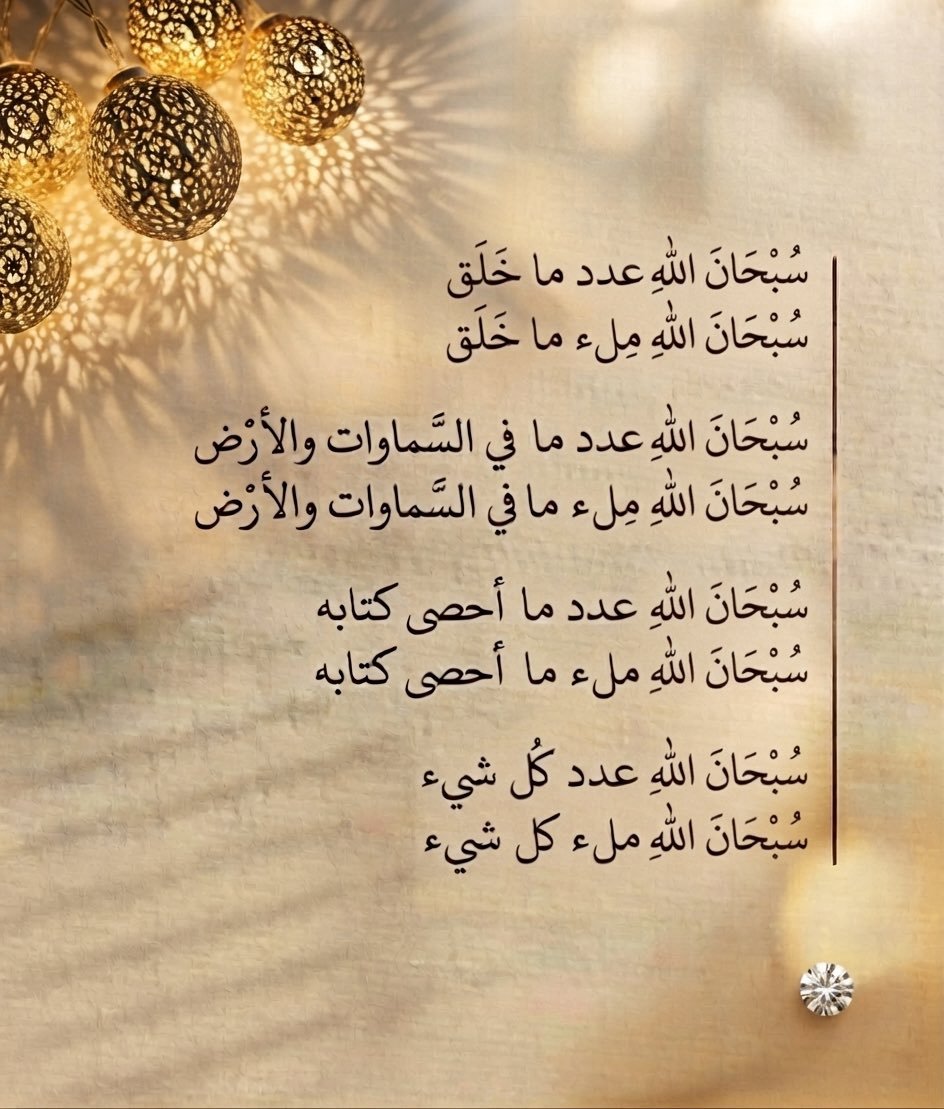 سُبْحَانَ اللهِ عدد ما خَلَق
سُبْحَانَ اللهِ مِلء ما خَلَق
سُبْحَانَ اللهِ عدد ما في السَّماوات والأرْض
سُبْحَانَ اللهِ مِلء ما في السَّماوات والأرْض
سُبْحَانَ اللهِ عدد ما أحصى كتابه
سُبْحَانَ اللهِ ملء ما أحصى كتابه
سُبْحَانَ اللهِ عدد كُل شيء
سُبْحَانَ اللهِ ملء كل شيء